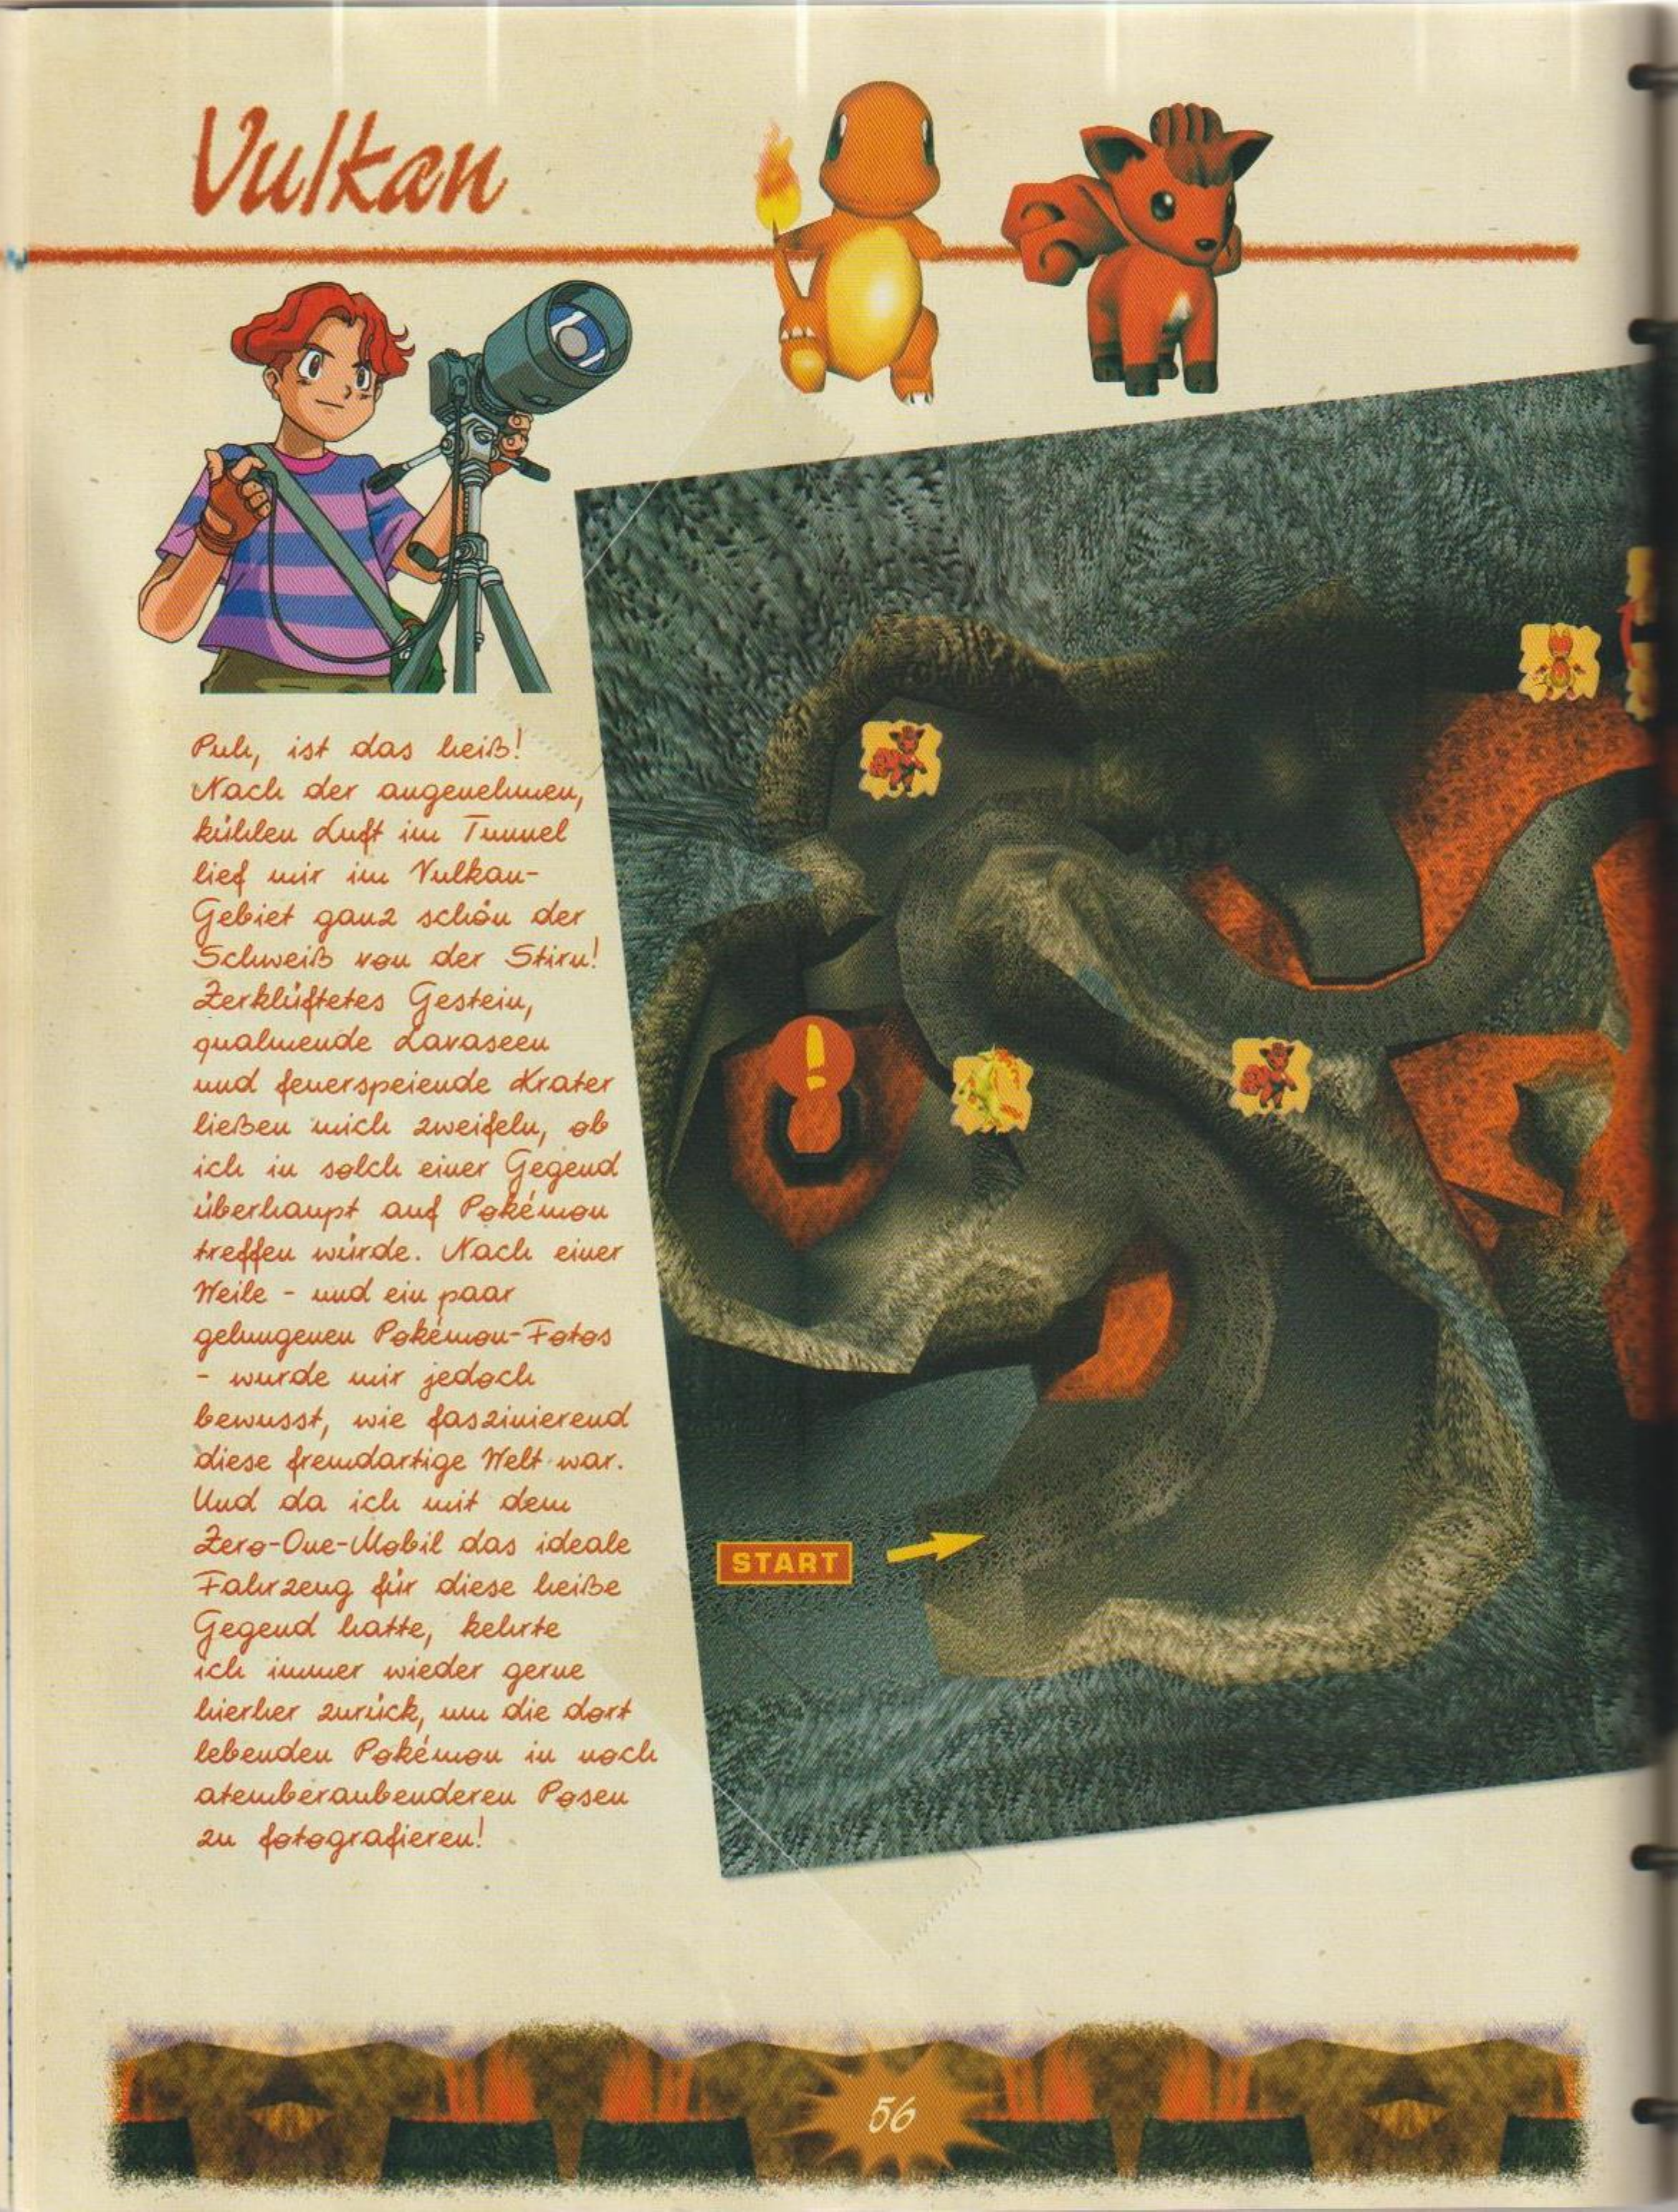 Vulkan
Puh, ist das heiß!
Nach der angenehmen,
kühlen Luft im Tunnel
lief mir im Vulkan-
Gebiet ganz schön der
Schweiß von der Stirn!
Zerklüftetes Gestein,
qualmende Lavaseen
und feuerspeiende Krater
ließen mich zweifeln, ob
ich in solch einer Gegend
überhaupt auf Pokémon
treffen würde. Nach einer
Weile - und ein paar
gelungenen Pokémon-Fotos
- wurde mir jedoch
bewusst, wie faszinierend
diese fremdartige Welt war.
Und da ich mit dem
Zero-One-Mobil das ideale
Fahrzeug für diese heiße
Gegend hatte, kehrte
ich immer wieder gerne
hierher zurück, um die dort
lebenden Pokémon in noch
atemberaubenderen Posen
zu fotografieren!
!
START
56